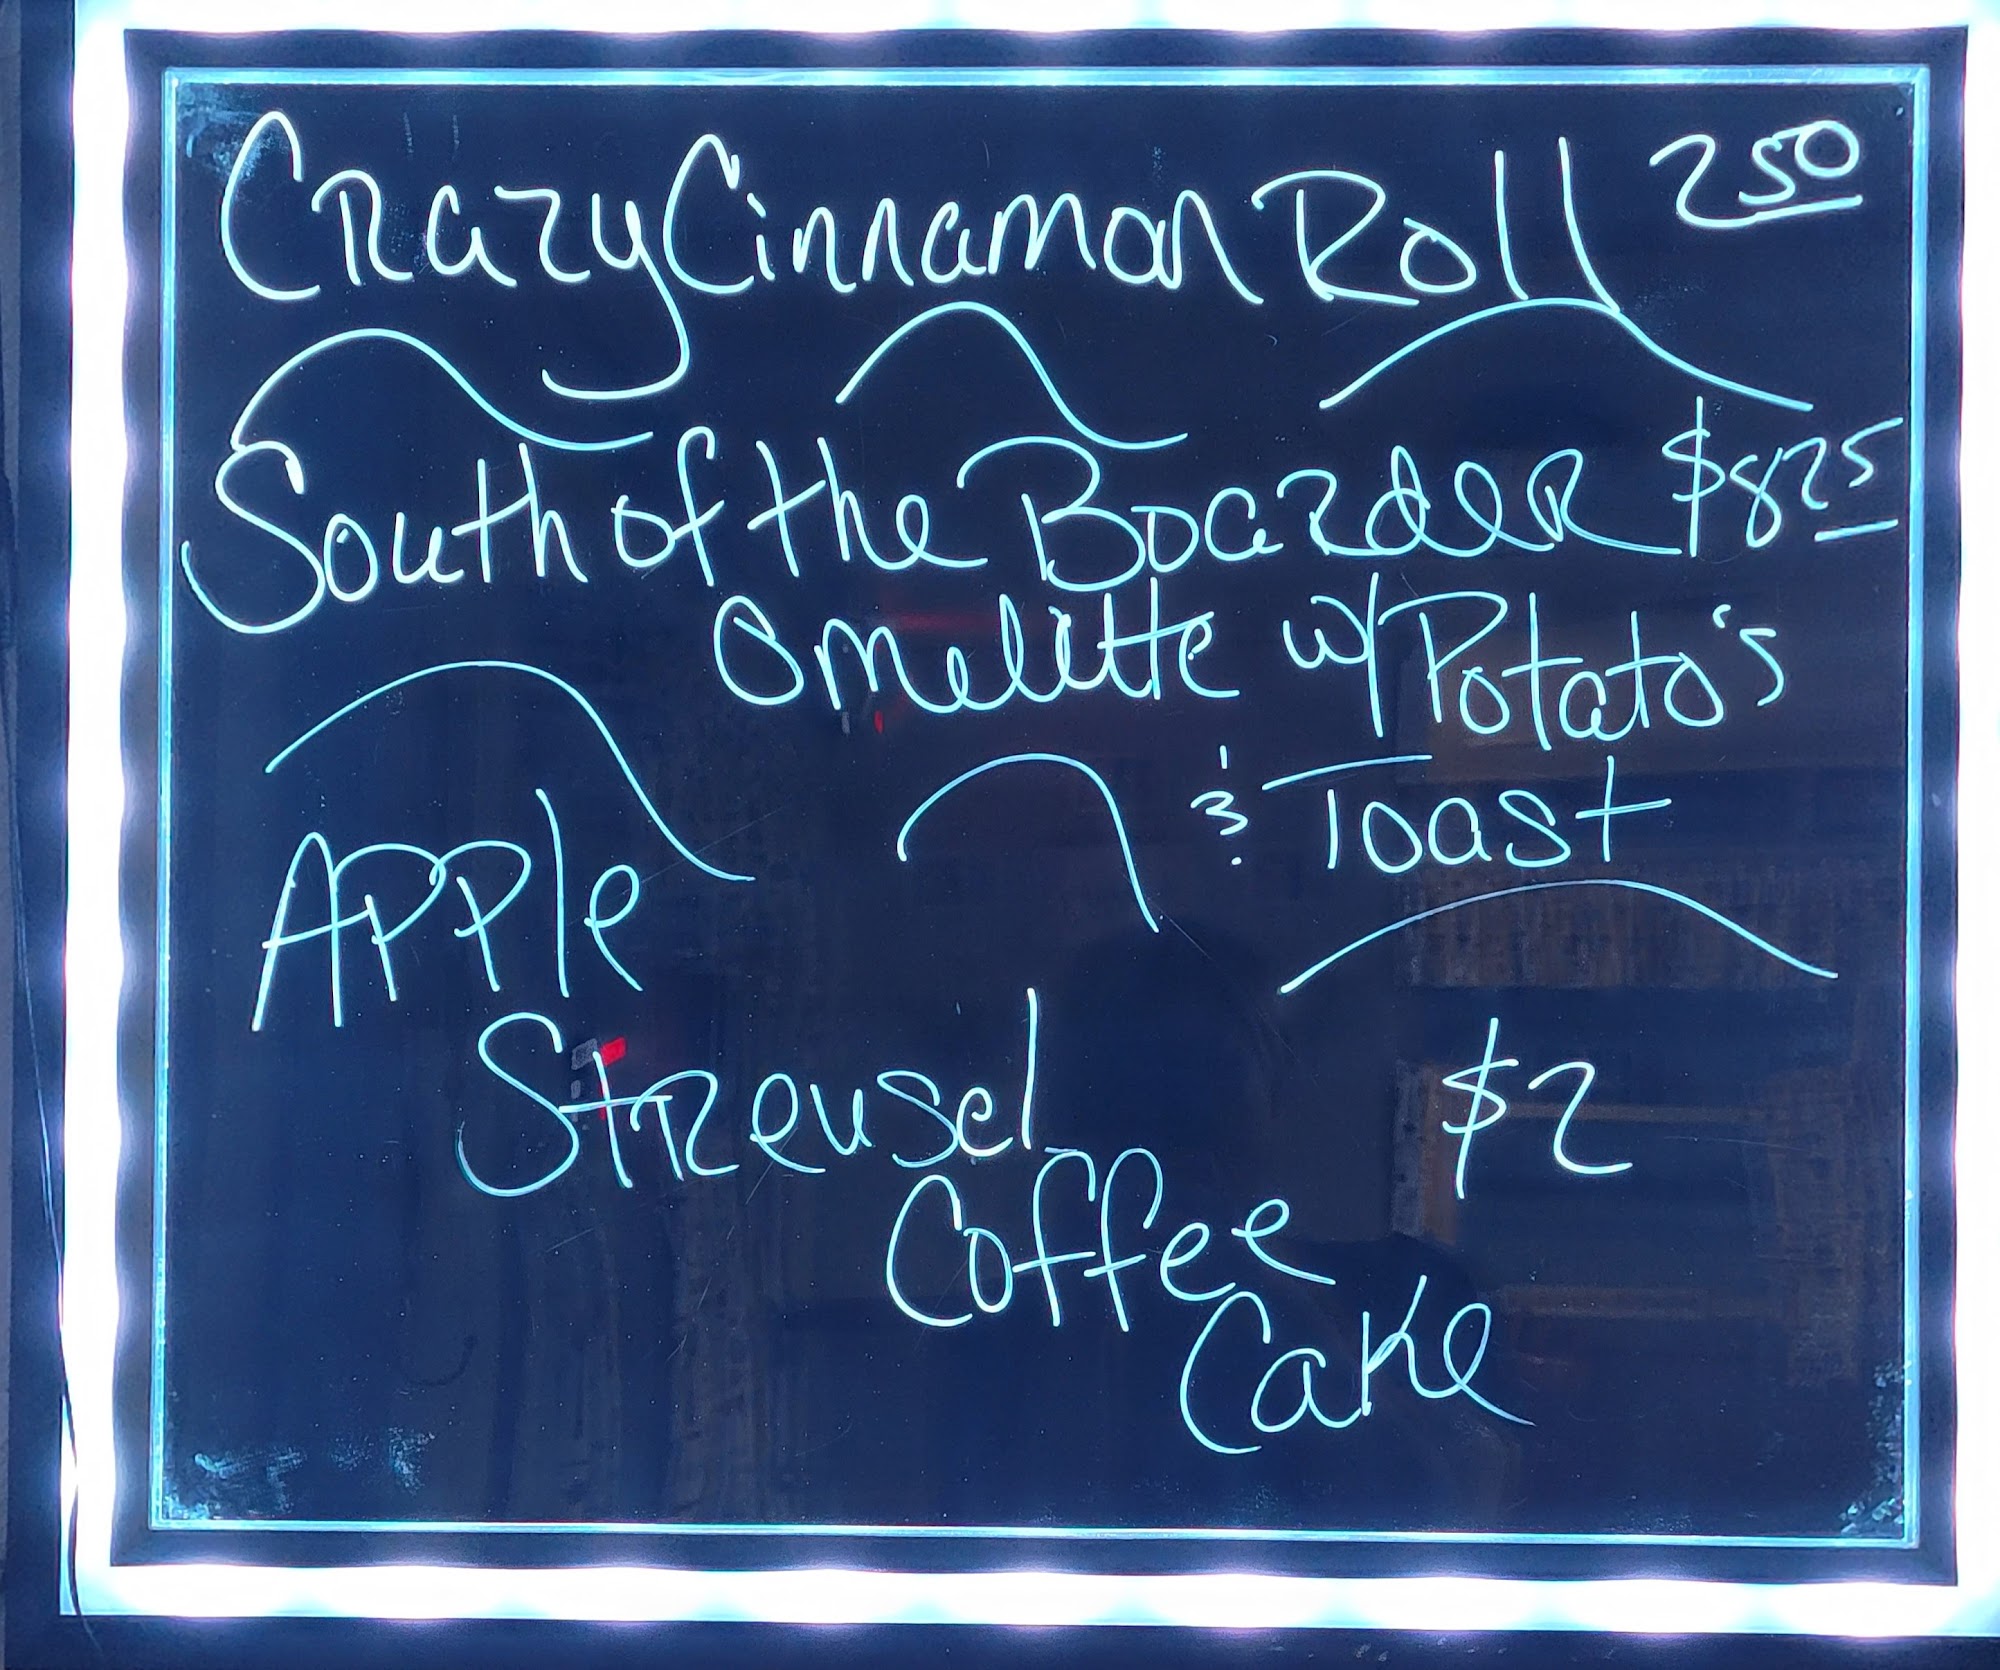 Crazy Cinnamon Roll 2 50
South of the Boarder $8 25
Omelitte w/ Potato's
& Toast
Apple
Streusel $2
Coffee
Cake